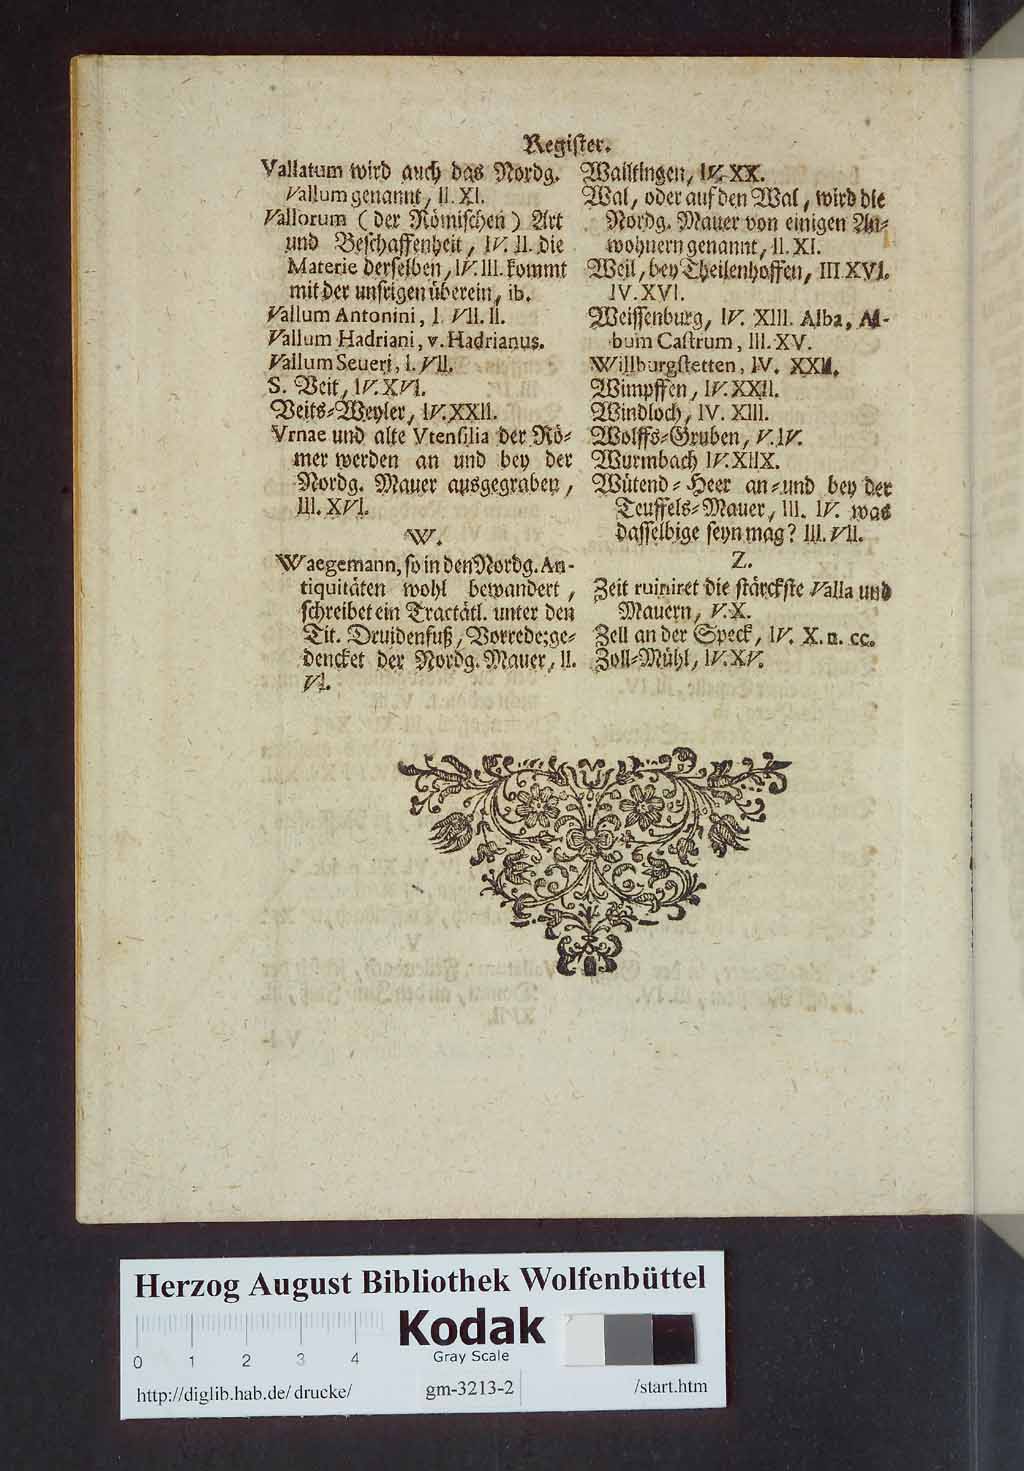 Register.
Vallatum wird auch das Nordg.
Vallum genannt, II. XI.
Vallorum (der Römischen) Art
und Beschaffenheit, IV. II. die
Materie derselben, IV. III. kommt
mit der unsrigen überein, ib.
Vallum Antonini, I. VII. II.
Vallum Hadriani, v. Hadrianus.
Vallum Seueri, I. VII.
S. Veit, IV. XVI.
Veits-Weyler, IV. XXII.
Vrnae und alte Vtensilia der Rö-
mer werden an und bey der
Nordg. Mauer ausgegraben,
III. XVI.
W.
Waegemann, so in den Nordg. An-
tiquitäten wohl bewandert,
schreibet ein Tractätl. unter den
Tit. Druidenfuß, Vorrede; ge-
dencket der Nordg. Mauer, II.
VI.
Wailtingen, IV. XX.
Wal, oder auf den Wal, wird die
Nordg. Mauer von einigen An-
wohnern genannt, II. XI.
Weil, bey Theilenhoffen, III XVI.
IV. XVI.
Weissenburg, IV. XIII. Alba, Al-
bum Castrum, III. XV.
Willburgstetten, IV. XXII.
Wimpffen, IV. XXII.
Windloch, IV. XIII.
Wolffs-Gruben, V. IV.
Wurmbach IV. XIIX.
Wütend-Heer an- und bey der
Teuffels-Mauer, III. IV. was
dasselbige seyn mag? III. VII.
Z.
Zeit ruiniret die stärckste Valla und
Mauern, V. X.
Zell an der Speck, IV. X. n. cc.
Zoll-Mühl, IV. XV.
Herzog August Bibliothek Wolfenbüttel
Kodak
Gray Scale
0 1 2 3 4
http://diglib.hab.de/drucke/ gm-3213-2 /start.htm